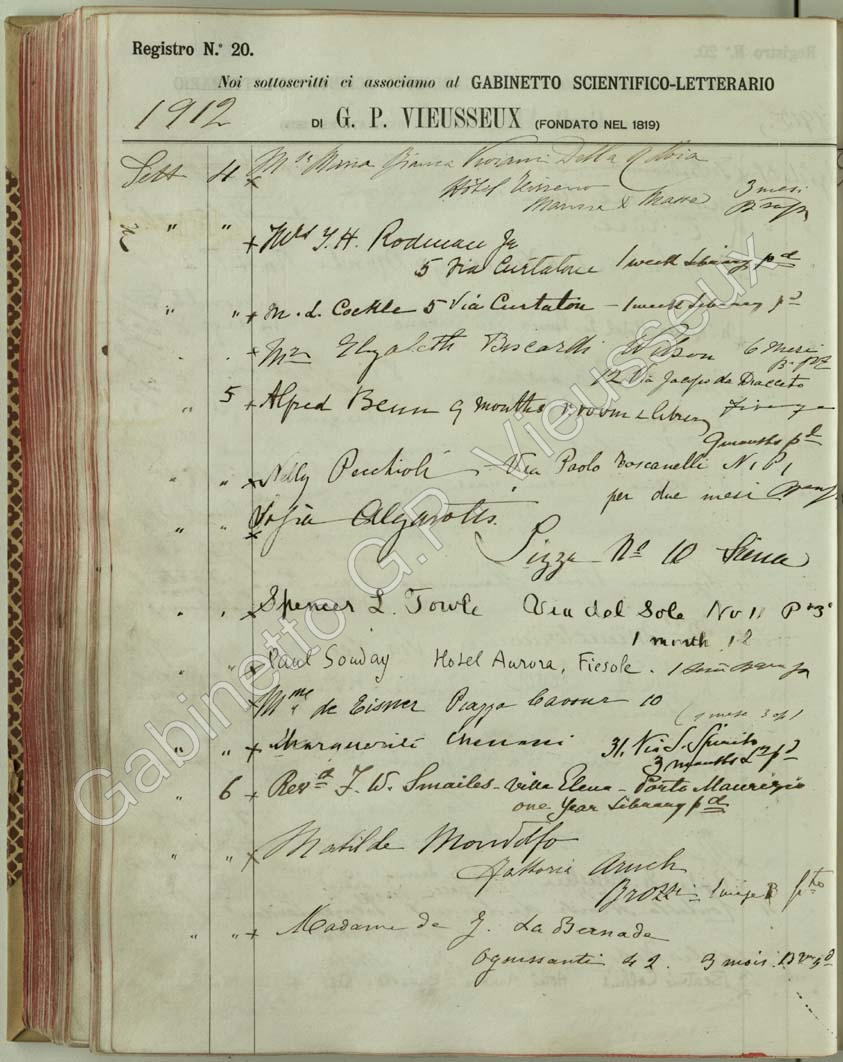 Registro N.° 20.
Noi sottoscritti ci associamo al GABINETTO SCIENTIFICO-LETTERARIO
1912
DI G. P. VIEUSSEUX (FONDATO NEL 1819)
Sett 4 Maria Bianca Viviani Della Robbia
Hôtel
Massa 3 mesi
" " + Mrs T. H. Rodman Jr
5 Via Curtatone 1 week Library pd
" " + M. L. Cockle 5 Via Curtatone - 1 week Library pd
+ Elizabeth Boscardi Wilson 6 mesi
12 Via Jacopo da Diacceto
" 5 + Alfred Benn 9 months room & library Firenze
9 months pd
" " + Nelly Pecchioli Via Paolo Toscanelli N. 1 P. 1
per due mesi
" " + Sofia Algarotti
No 10 Siena
" " + Spencer L. Towle Via del Sole No 11 P° 3°
1 month
" " + Paul Souday Hotel Aurora, Fiesole.
+ Mme de Eisner Piazza Cavour 10
" " + Marguerite 31. Via S. Spirito
3 months pd
" 6 + Revd F. W. Smailes - Villa Elena - Porto Maurizio
one year Library pd
" " + Matilde Mondolfo
Fattoria
Brozzi
" " + Madame de J. La Bernade
42. 3 mois.
Gabinetto G.P. Vieusseux